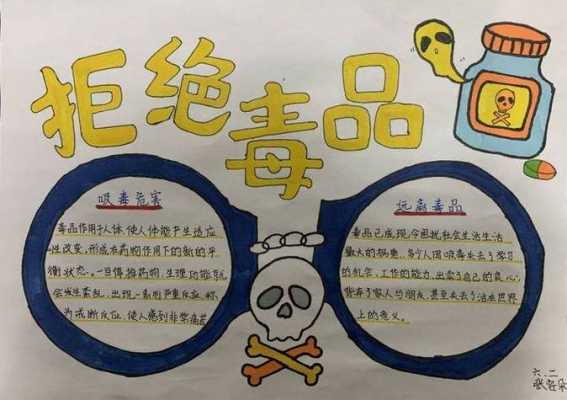 拒绝毒品
吸毒危害
毒品作用于人体,使人体能产生适应
性改变,形成在药物作用下的新的平
衡状态。一旦停掉药物,生理功能就
会发生紊乱,出现一系列严重反应,称
为戒断反应,使人感到非常痛苦
远离毒品
毒品已成现今困扰社会生活
最大的祸患,多少人因吸毒失去了学习
的机会,工作的能力,出卖了自己的良心,
背弃了家人与朋友,甚至失去了活在世界
上的意义。
六、二